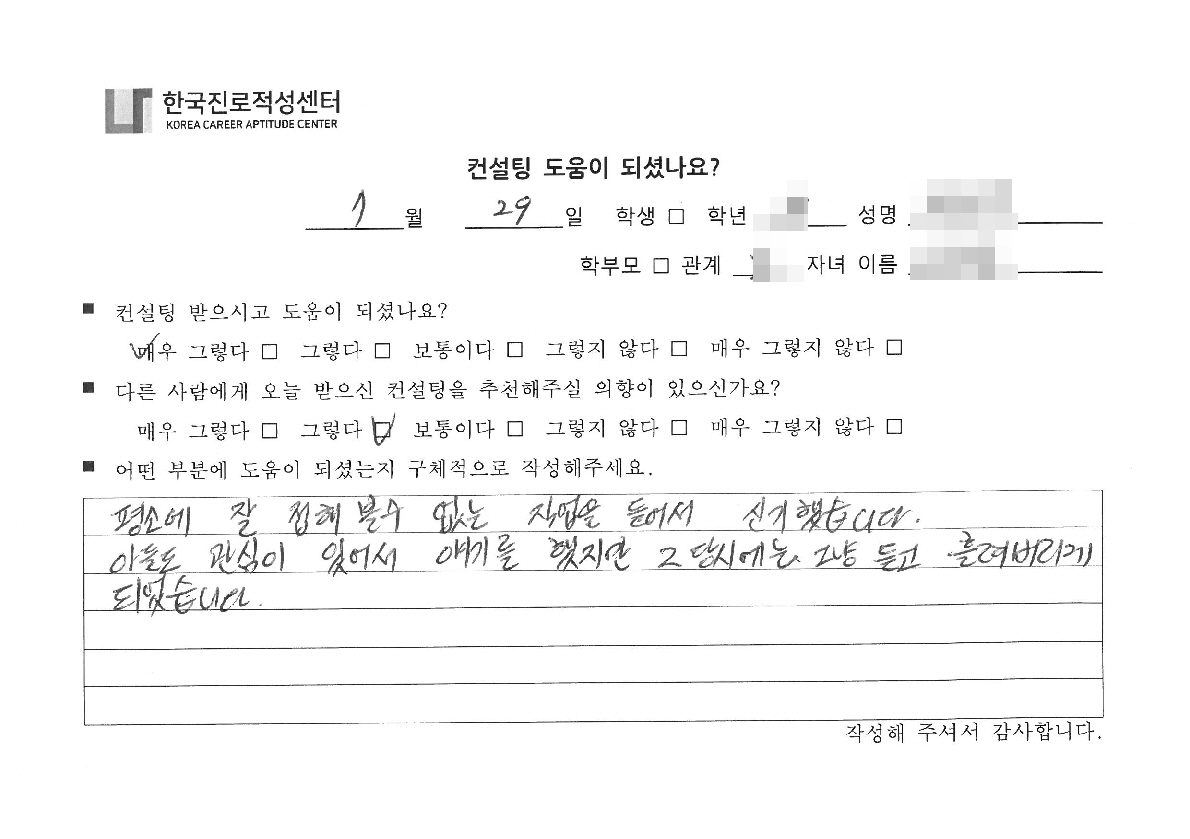 한국진로적성센터
KOREA CAREER APTITUDE CENTER
컨설팅 도움이 되셨나요?
7 월 29 일 학생 □ 학년 성명
학부모 □ 관계 자녀 이름
■ 컨설팅 받으시고 도움이 되셨나요?
매우 그렇다 □ 그렇다 □ 보통이다 □ 그렇지 않다 □ 매우 그렇지 않다 □
■ 다른 사람에게 오늘 받으신 컨설팅을 추천해주실 의향이 있으신가요?
매우 그렇다 □ 그렇다 ☑ 보통이다 □ 그렇지 않다 □ 매우 그렇지 않다 □
■ 어떤 부분에 도움이 되셨는지 구체적으로 작성해주세요.
평소에 잘 접해 볼수 없는 직업을 들어서 신기했습니다.
아들도 관심이 있어서 얘기를 했지만 그 당시에는 그냥 듣고 흘려버리게
되었습니다.
작성해 주셔서 감사합니다.